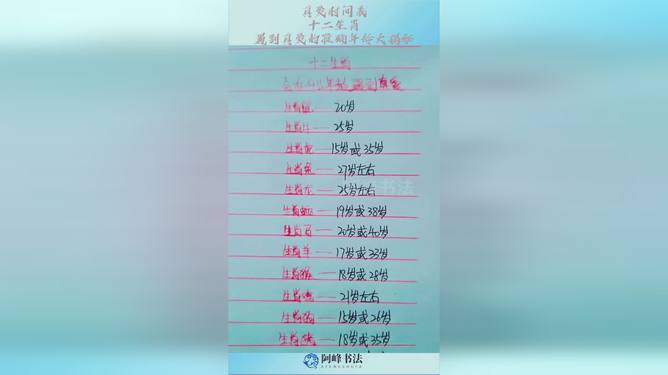 真爱时间表
十二生肖
遇到真爱时段的年龄大揭秘
十二生肖
会在什么年龄遇到真爱
生肖鼠——20岁
生肖牛——25岁
生肖虎——15岁或35岁
生肖兔——27岁左右
生肖龙——25岁左右
生肖蛇——19岁或38岁
生肖马——20岁或40岁
生肖羊——17岁或23岁
生肖猴——18岁或28岁
生肖鸡——21岁左右
生肖狗——15岁或26岁
生肖猪——18岁或35岁
书法
阿峰书法
AFENGSHUFA